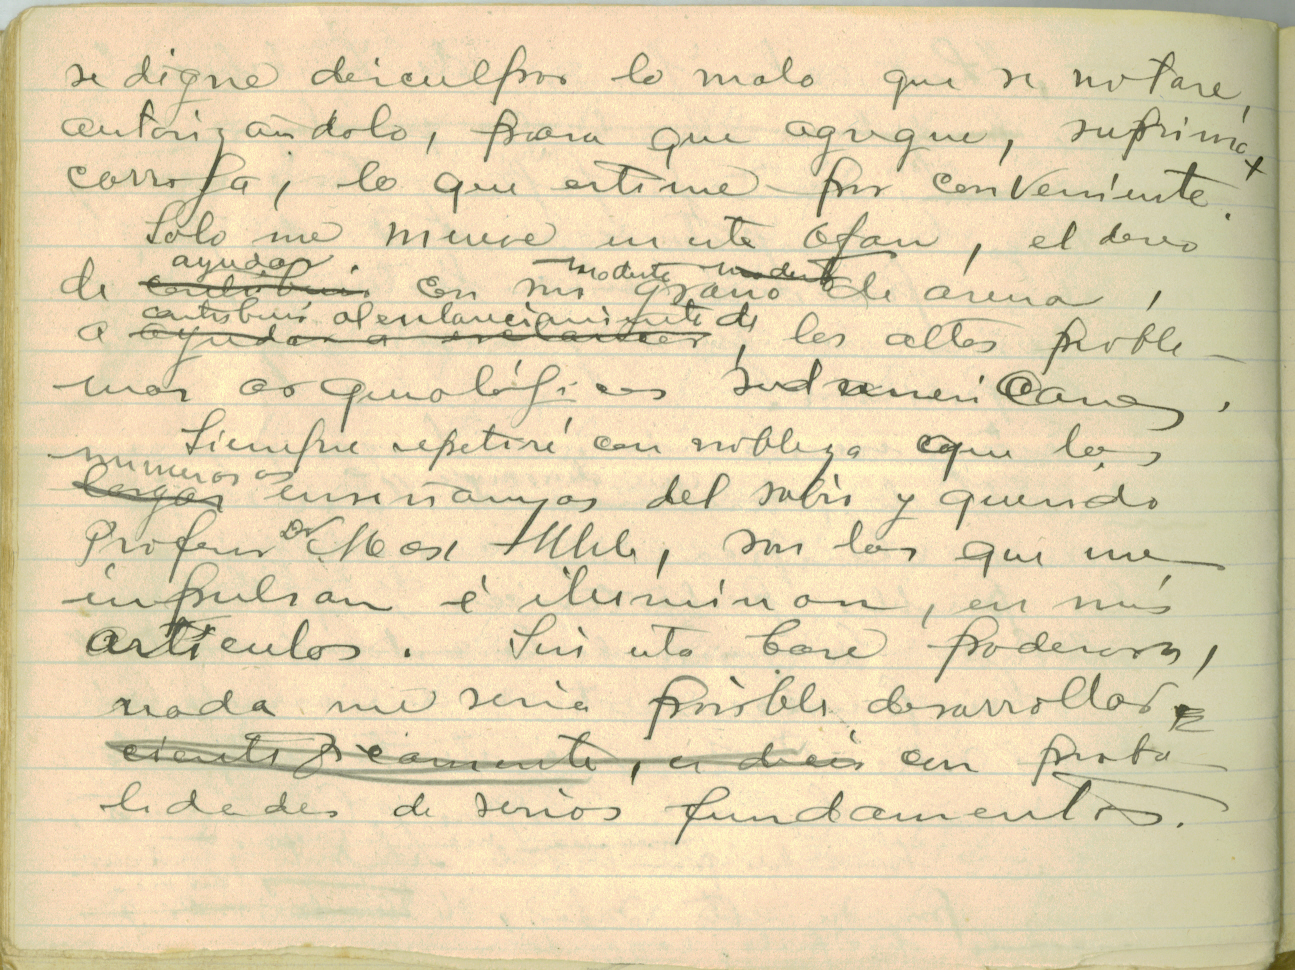 se digne disculpar lo malo que se notare,
autorizándolo, para que agregue, suprima x
corrija, lo que estime por conveniente.
Solo me mueve en este afan, el deseo
ayudar modesto modesto
de contribuir con mi grano de arena,
contribuir al esclarecimiento de
a ayudar a esclarecer, los altos proble-
mas arqueológicos sudamericanos.
Siempre repetiré con nobleza que las
numerosas
largas enseñanzas del sabio y querido
Profesor Dr Max Uhle, son las que me
impulsan é iluminan, en mis
artículos. Sin esta base poderosa,
nada me seria posible desarrollar
cientificamente, es decir con proba
lidades de serios fundamentos.